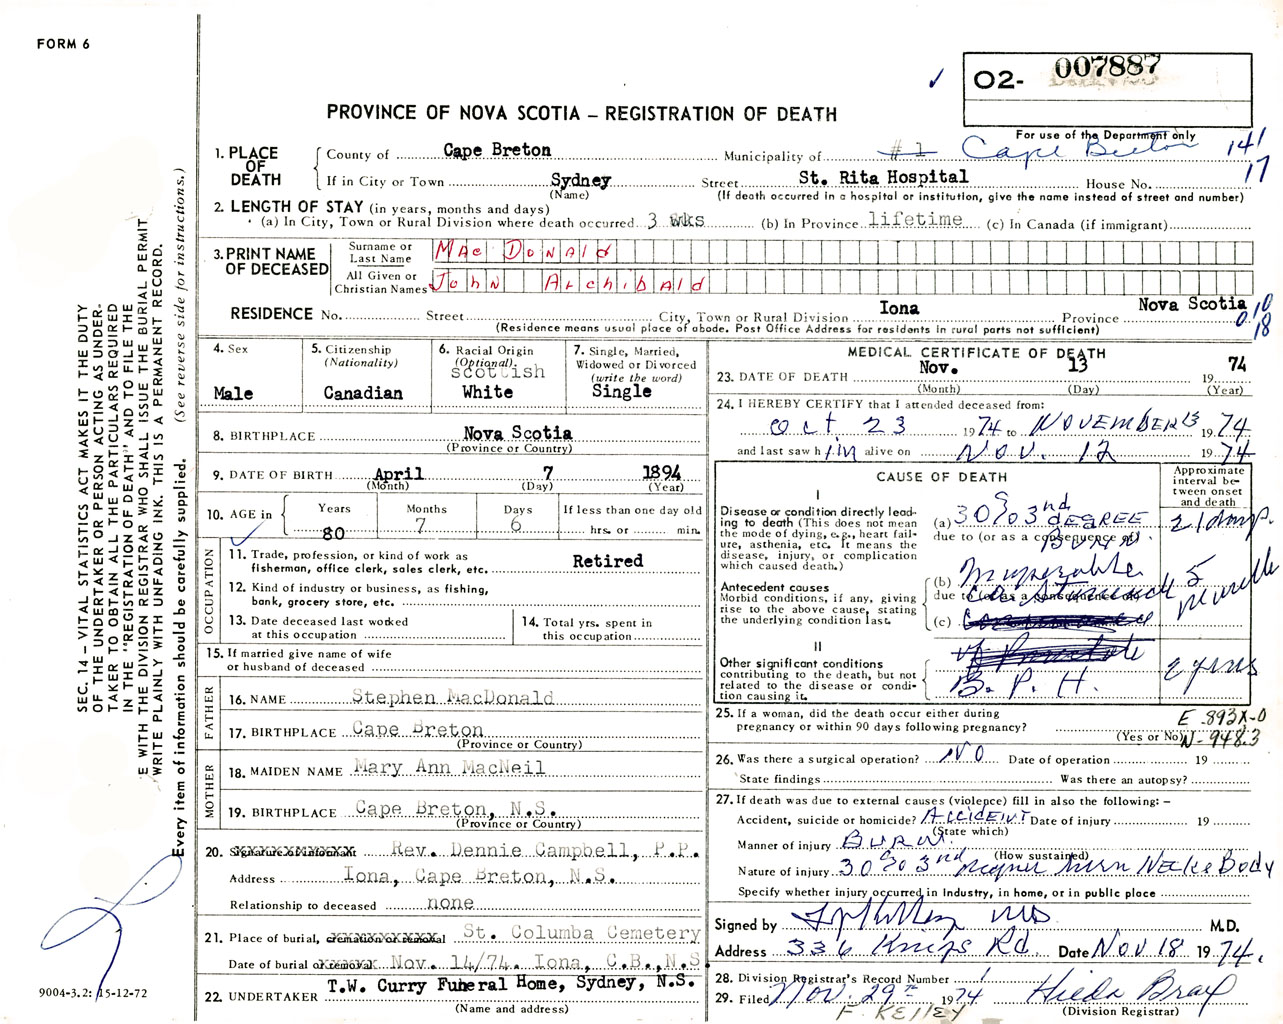 FORM 6
O2- 007887
PROVINCE OF NOVA SCOTIA – REGISTRATION OF DEATH
For use of the Department only
1. PLACE OF DEATH
County of Cape Breton Municipality of # 1 Cape Breton 141
17
If in City or Town Sydney Street St. Rita Hospital House No.
(Name) (If death occurred in a hospital or institution, give the name instead of street and number)
2. LENGTH OF STAY (in years, months and days)
(a) In City, Town or Rural Division where death occurred 3 wks (b) In Province lifetime (c) In Canada (if immigrant)
3. PRINT NAME OF DECEASED
Surname or Last Name MacDonald
All Given or Christian Names John Archibald
RESIDENCE No. Street City, Town or Rural Division Iona Province Nova Scotia
(Residence means usual place of abode. Post Office Address for residents in rural parts not sufficient)
10
18
4. Sex
Male
5. Citizenship
(Nationality)
Canadian
6. Racial Origin
(Optional)
scottish
White
7. Single, Married, Widowed or Divorced
(write the word)
Single
8. BIRTHPLACE Nova Scotia
(Province or Country)
9. DATE OF BIRTH April 7 1894
(Month) (Day) (Year)
10. AGE in
Years Months Days If less than one day old
80 7 6 hrs. or min.
OCCUPATION
11. Trade, profession, or kind of work as fisherman, office clerk, sales clerk, etc. Retired
12. Kind of industry or business, as fishing, bank, grocery store, etc.
13. Date deceased last worked at this occupation
14. Total yrs. spent in this occupation
15. If married give name of wife or husband of deceased
FATHER
16. NAME Stephen MacDonald
17. BIRTHPLACE Cape Breton
(Province or Country)
MOTHER
18. MAIDEN NAME Mary Ann MacNeil
19. BIRTHPLACE Cape Breton, N.S.
(Province or Country)
20. Signature of informant Rev. Dennie Campbell, P.P.
Address Iona, Cape Breton, N.S.
Relationship to deceased none
21. Place of burial, cremation or removal St. Columba Cemetery
Date of burial or removal Nov. 14/74. Iona, C.B.,N.S.
22. UNDERTAKER T.W. Curry Funeral Home, Sydney, N.S.
(Name and address)
MEDICAL CERTIFICATE OF DEATH
23. DATE OF DEATH Nov. 13 1974
(Month) (Day) (Year)
24. I HEREBY CERTIFY that I attended deceased from:
Oct 23 1974 to NOVEMBER 13 1974
and last saw him alive on NOV. 12 1974
CAUSE OF DEATH
Approximate interval between onset and death
I
Disease or condition directly leading to death (This does not mean the mode of dying, e.g., heart failure, asthenia, etc. It means the disease, injury, or complication which caused death.)
(a) 30% 3rd DEGREE BURN 21 days
due to (or as a consequence of)
Antecedent causes
Morbid conditions, if any, giving rise to the above cause, stating the underlying condition last.
(b) Inoperable
due to (or as a consequence of)
Ca Stomach 5
(c)
II
Other significant conditions contributing to the death, but not related to the disease or condition causing it.
B. P. H. 2 years
25. If a woman, did the death occur either during pregnancy or within 90 days following pregnancy?
(Yes or No)
E -893X-0
N-948.3
26. Was there a surgical operation? NO Date of operation 19
State findings Was there an autopsy?
27. If death was due to external causes (violence) fill in also the following: –
Accident, suicide or homicide? ACCIDENT Date of injury 19
(State which)
Manner of injury BURN
(How sustained)
Nature of injury 30% 3rd degree burn NECK & BODY
Specify whether injury occurred in Industry, in home, or in public place
Signed by M.D.
Address 336 Kings Rd Date NOV 18 1974.
28. Division Registrar's Record Number 1
29. Filed Nov. 29th 1974 Hilda Bray
F. KELLEY (Division Registrar)
SEC. 14 – VITAL STATISTICS ACT MAKES IT THE DUTY
OF THE UNDERTAKER OR PERSON ACTING AS UNDER-
TAKER TO OBTAIN ALL THE PARTICULARS REQUIRED
IN THE "REGISTRATION OF DEATH" AND TO FILE THE
E WITH THE DIVISION REGISTRAR WHO SHALL ISSUE THE BURIAL PERMIT
WRITE PLAINLY WITH UNFADING INK. THIS IS A PERMANENT RECORD.
Every item of information should be carefully supplied. (See reverse side for instructions.)
9004-3.2: 15-12-72